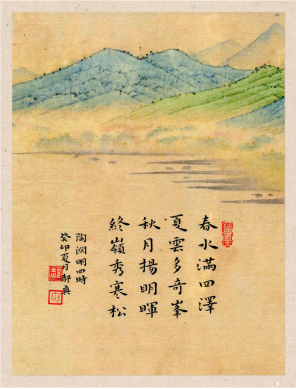 春水滿四澤
夏雲多奇峯
秋月揚明暉
終嶺秀寒松
陶淵明四時
癸卯夏月